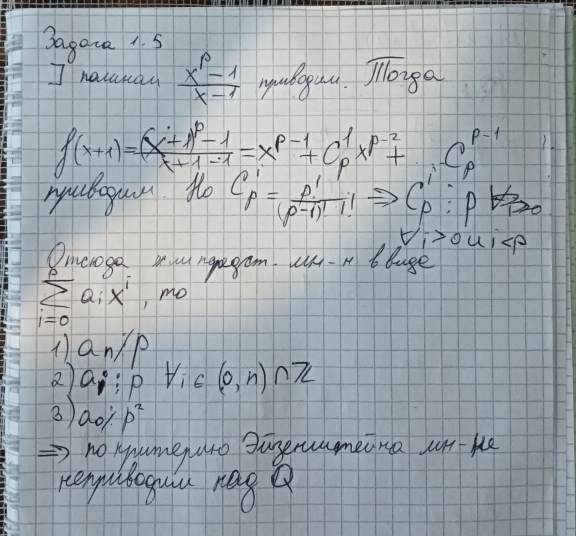 Задача 1.5
] полином (x^p - 1)/(x - 1) приводим. Тогда
f(x+1) = ((x+1)^p - 1)/(x+1-1) = x^{p-1} + C_p^1 x^{p-2} + ... C_p^{p-1}
приводим. Но C_p^i = p!/((p-i)! i!) ⇒ C_p^i ⋮ p
∀i>0 и i<p
Отсюда если предст. мн-н в виде
∑_{i=0}^{p} a_i x^i, то
1) a_n ⋮̸ p
2) a_i ⋮ p ∀i ∈ (0, n) ∩ ℤ
3) a_0 ⋮̸ p^2
⇒ по критерию Эйзенштейна мн-н
неприводим над ℚ